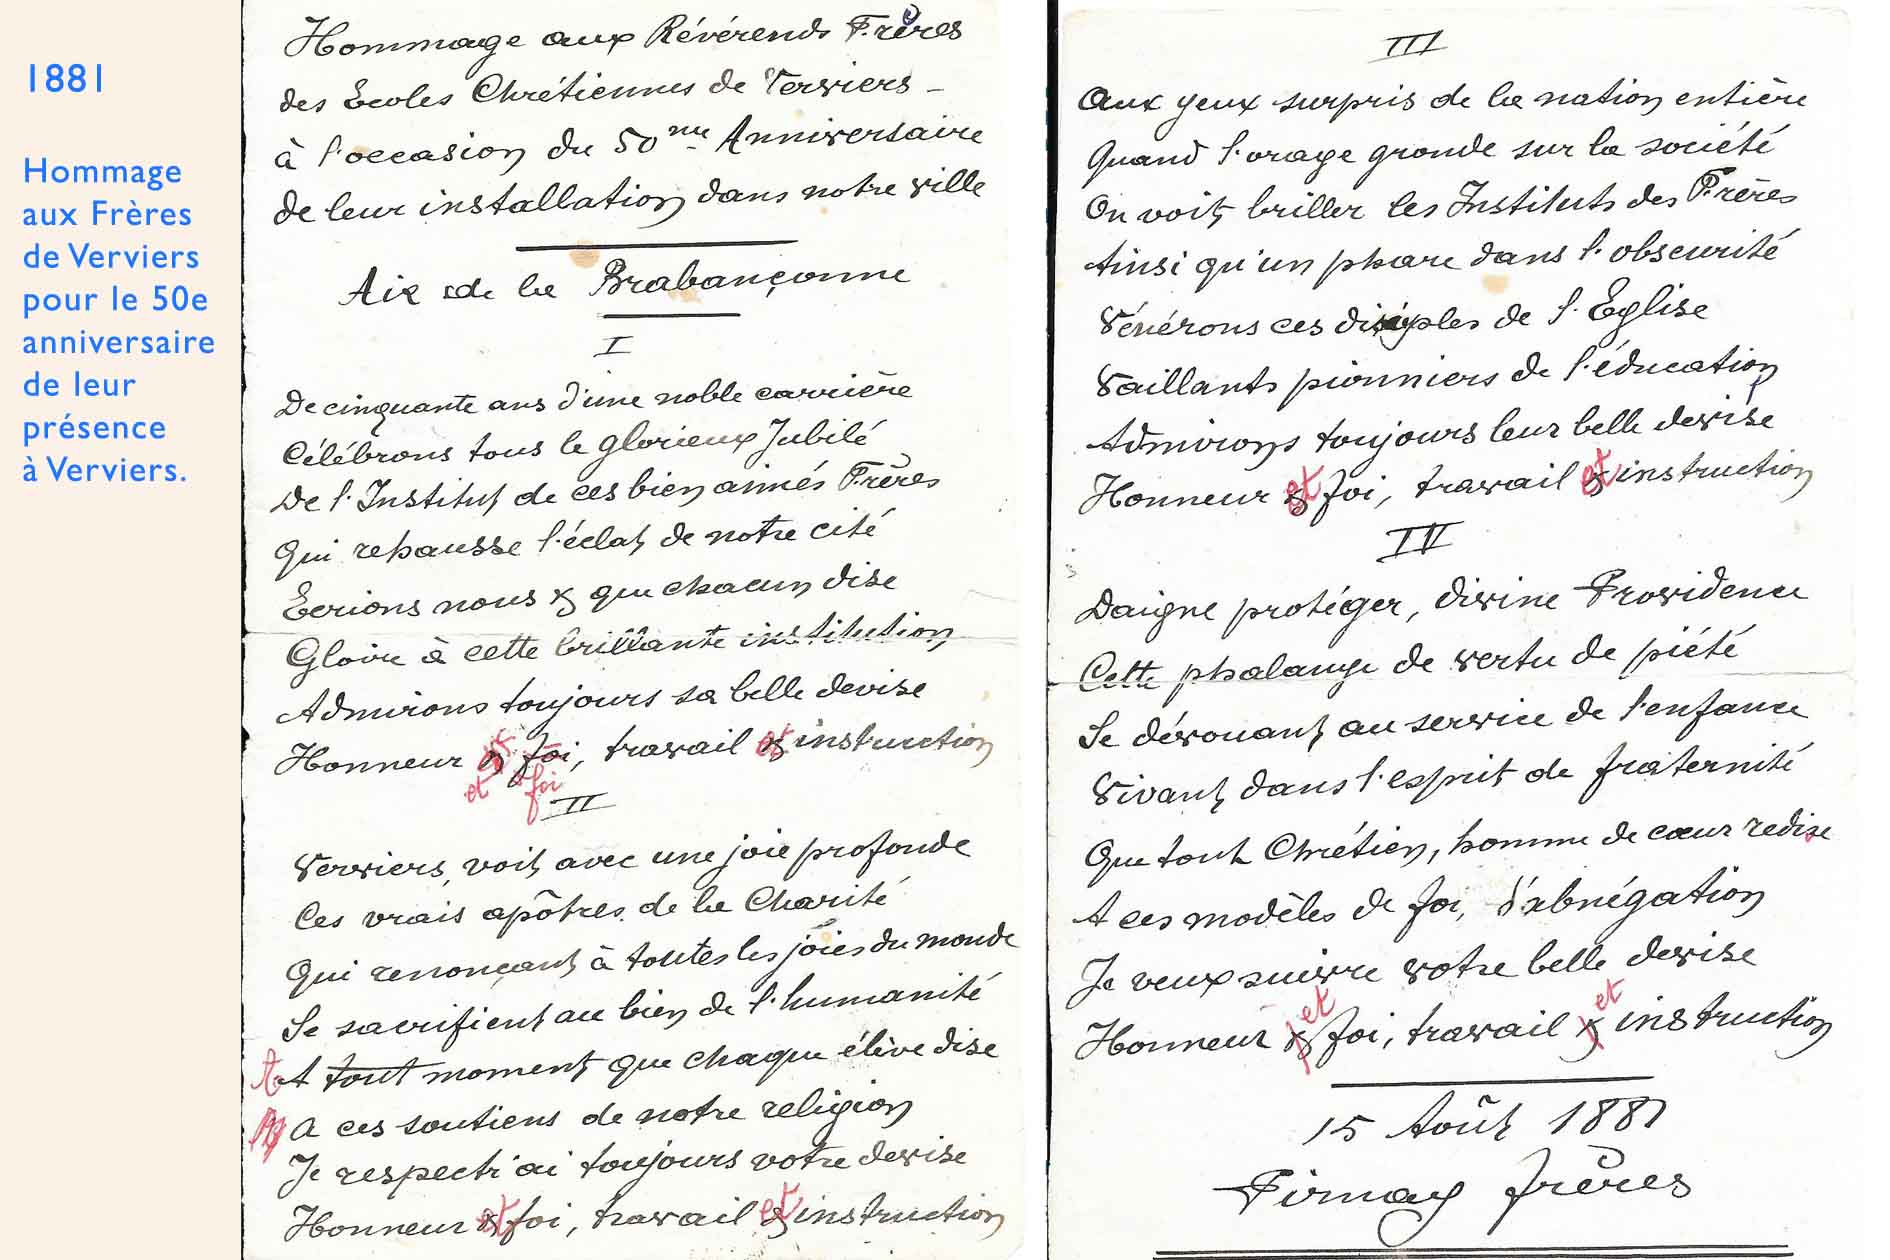 1881
Hommage
aux Frères
de Verviers
pour le 50e
anniversaire
de leur
présence
à Verviers.
Hommage aux Révérends Frères
des Ecoles Chrétiennes de Verviers -
à l'occasion du 50me Anniversaire
de leur installation dans notre ville
Air de la Brabançonne
I
De cinquante ans d'une noble carrière
Célébrons tous le glorieux Jubilé
De l'Institut de ces bien aimés Frères
Qui rehausse l'éclat de notre cité
Ecrions nous & que chacun dise
Gloire à cette brillante institution
Admirons toujours sa belle devise
Honneur & foi, travail & instruction
et foi et
II
Verviers, voit avec une joie profonde
Ces vrais apôtres de la Charité
Qui renonçant à toutes les joies du monde
Se sacrifient au bien de l'humanité
A tout moment que chaque élève dise
A ces soutiens de notre religion
Je respect'ai toujours votre devise
Honneur et foi, travail et instruction
III
Aux yeux surpris de la nation entière
Quand l'orage gronde sur la société
On voit briller les Instituts des Frères
Ainsi qu'un phare dans l'obscurité
Vénérons ces disciples de l'Eglise
Vaillants pionniers de l'éducation
Admirons toujours leur belle devise
Honneur et foi, travail et instruction
IV
Daigne protéger, divine Providence
Cette phalange de vertu de piété
Se dévouant au service de l'enfance
Vivant dans l'esprit de fraternité
Que tout Chrétien, homme de cœur redise
A ces modèles de foi, d'abnégation
Je veux suivre votre belle devise
Honneur & et foi, travail & et instruction
15 Août 1881
Pirnay frères